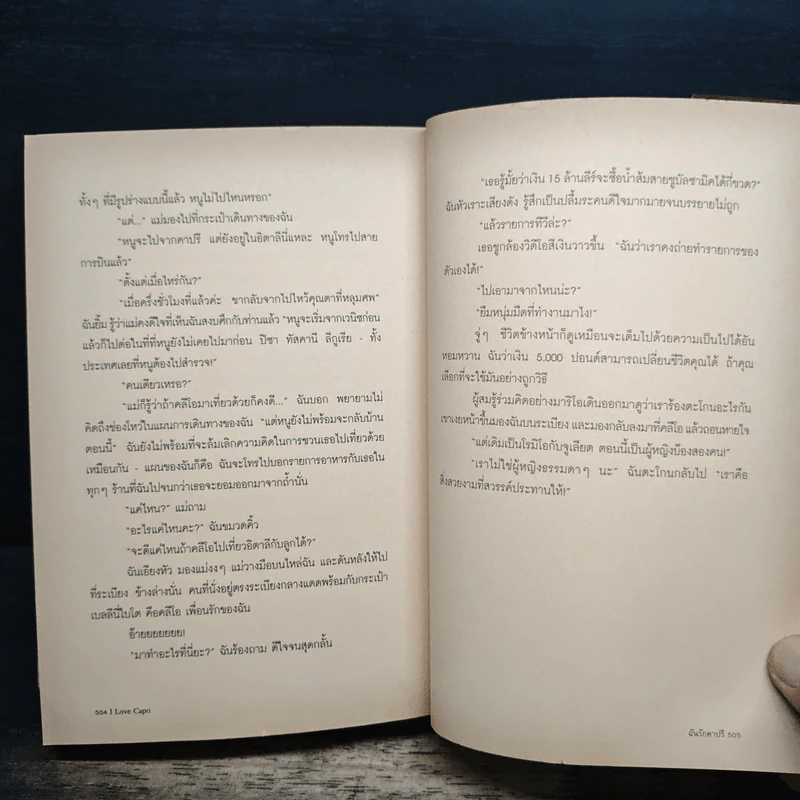 ทั้งๆ ที่มีรูปร่างแบบนี้แล้ว หนูไม่ไปไหนหรอก"
"แต่..." แม่มองไปที่กระเป๋าเดินทางของฉัน
"หนูจะไปจากคาปรี แต่ยังอยู่ในอิตาลีนี่แหละ หนูโทรไปสาย
การบินแล้ว"
"ตั้งแต่เมื่อไหร่กัน?"
"เมื่อครึ่งชั่วโมงที่แล้วค่ะ ขากลับจากไปไหว้คุณตาที่หลุมศพ"
ฉันยิ้ม รู้ว่าแม่คงดีใจที่เห็นฉันสงบศึกกับท่านแล้ว "หนูจะเริ่มจากเวนิซก่อน
แล้วก็ไปต่อในที่ที่หนูยังไม่เคยไปมาก่อน ปิซา ทัสคานี ลิกูเรีย - ทั้ง
ประเทศเลยที่หนูต้องไปสำรวจ!"
"คนเดียวเหรอ?"
"แม่ก็รู้ว่าถ้าคลีโอมาเที่ยวด้วยก็คงดี..." ฉันบอก พยายามไม่
คิดถึงช่องโหว่ในแผนการเดินทางของฉัน "แต่หนูยังไม่พร้อมจะกลับบ้าน
ตอนนี้" ฉันยังไม่พร้อมที่จะล้มเลิกความคิดในการชวนเธอไปเที่ยวด้วย
เหมือนกัน - แผนของฉันก็คือ ฉันจะโทรไปบอกรายการอาหารกับเธอใน
ทุกๆ ร้านที่ฉันไปจนกว่าเธอจะยอมออกมาจากถ้ำนั่น
"แค่ไหน?" แม่ถาม
"อะไรแค่ไหนคะ?" ฉันขมวดคิ้ว
"จะดีแค่ไหนถ้าคลีโอไปเที่ยวอิตาลีกับลูกได้?"
ฉันเอียงหัว มองแม่งงๆ แม่วางมือบนไหล่ฉัน และดันหลังให้ไป
ที่ระเบียง ข้างล่างนั่น คนที่นั่งอยู่ตรงระเบียงกลางแดดพร้อมกับกระเป๋า
เบลลินีไปโต คือคลีโอ เพื่อนรักของฉัน
อ๊ายยยยยยย!
"มาทำอะไรที่นี่ยะ?" ฉันร้องถาม ดีใจจนสุดกลั้น
504 I Love Capri
"เธอรู้มั้ยว่าเงิน 15 ล้านลีร์จะซื้อน้ำส้มสายชูบัลซามิคได้กี่ขวด?"
ฉันหัวเราะเสียงดัง รู้สึกเป็นปลื้มระคนดีใจมากมายจนบรรยายไม่ถูก
"แล้วรายการทีวีล่ะ?"
เธอชูกล้องวิดิโอสีเงินวาวขึ้น "ฉันว่าเราคงถ่ายทำรายการของ
ตัวเองได้!"
"ไปเอามาจากไหนน่ะ?"
"ยืมหนุ่มมืดที่ทำงานมาไง!"
จู่ๆ ชีวิตข้างหน้าก็ดูเหมือนจะเต็มไปด้วยความเป็นไปได้อัน
หอมหวาน ฉันว่าเงิน 5,000 ปอนด์สามารถเปลี่ยนชีวิตคุณได้ ถ้าคุณ
เลือกที่จะใช้มันอย่างถูกวิธี
ผู้สมรู้ร่วมคิดอย่างมาริโอเดินออกมาดูว่าเราร้องตะโกนอะไรกัน
เขาเงยหน้าขึ้นมองฉันบนระเบียง และมองกลับลงมาที่คลีโอ แล้วถอนหายใจ
"แต่เดิมเป็นโรมิโอกับจูเลียต ตอนนี้เป็นผู้หญิงบ๊องสองคน!"
"เราไม่ใช่ผู้หญิงธรรมดาๆ นะ" ฉันตะโกนกลับไป "เราคือ
สิ่งสวยงามที่สวรรค์ประทานให้!"
ฉันรักคาปรี 505